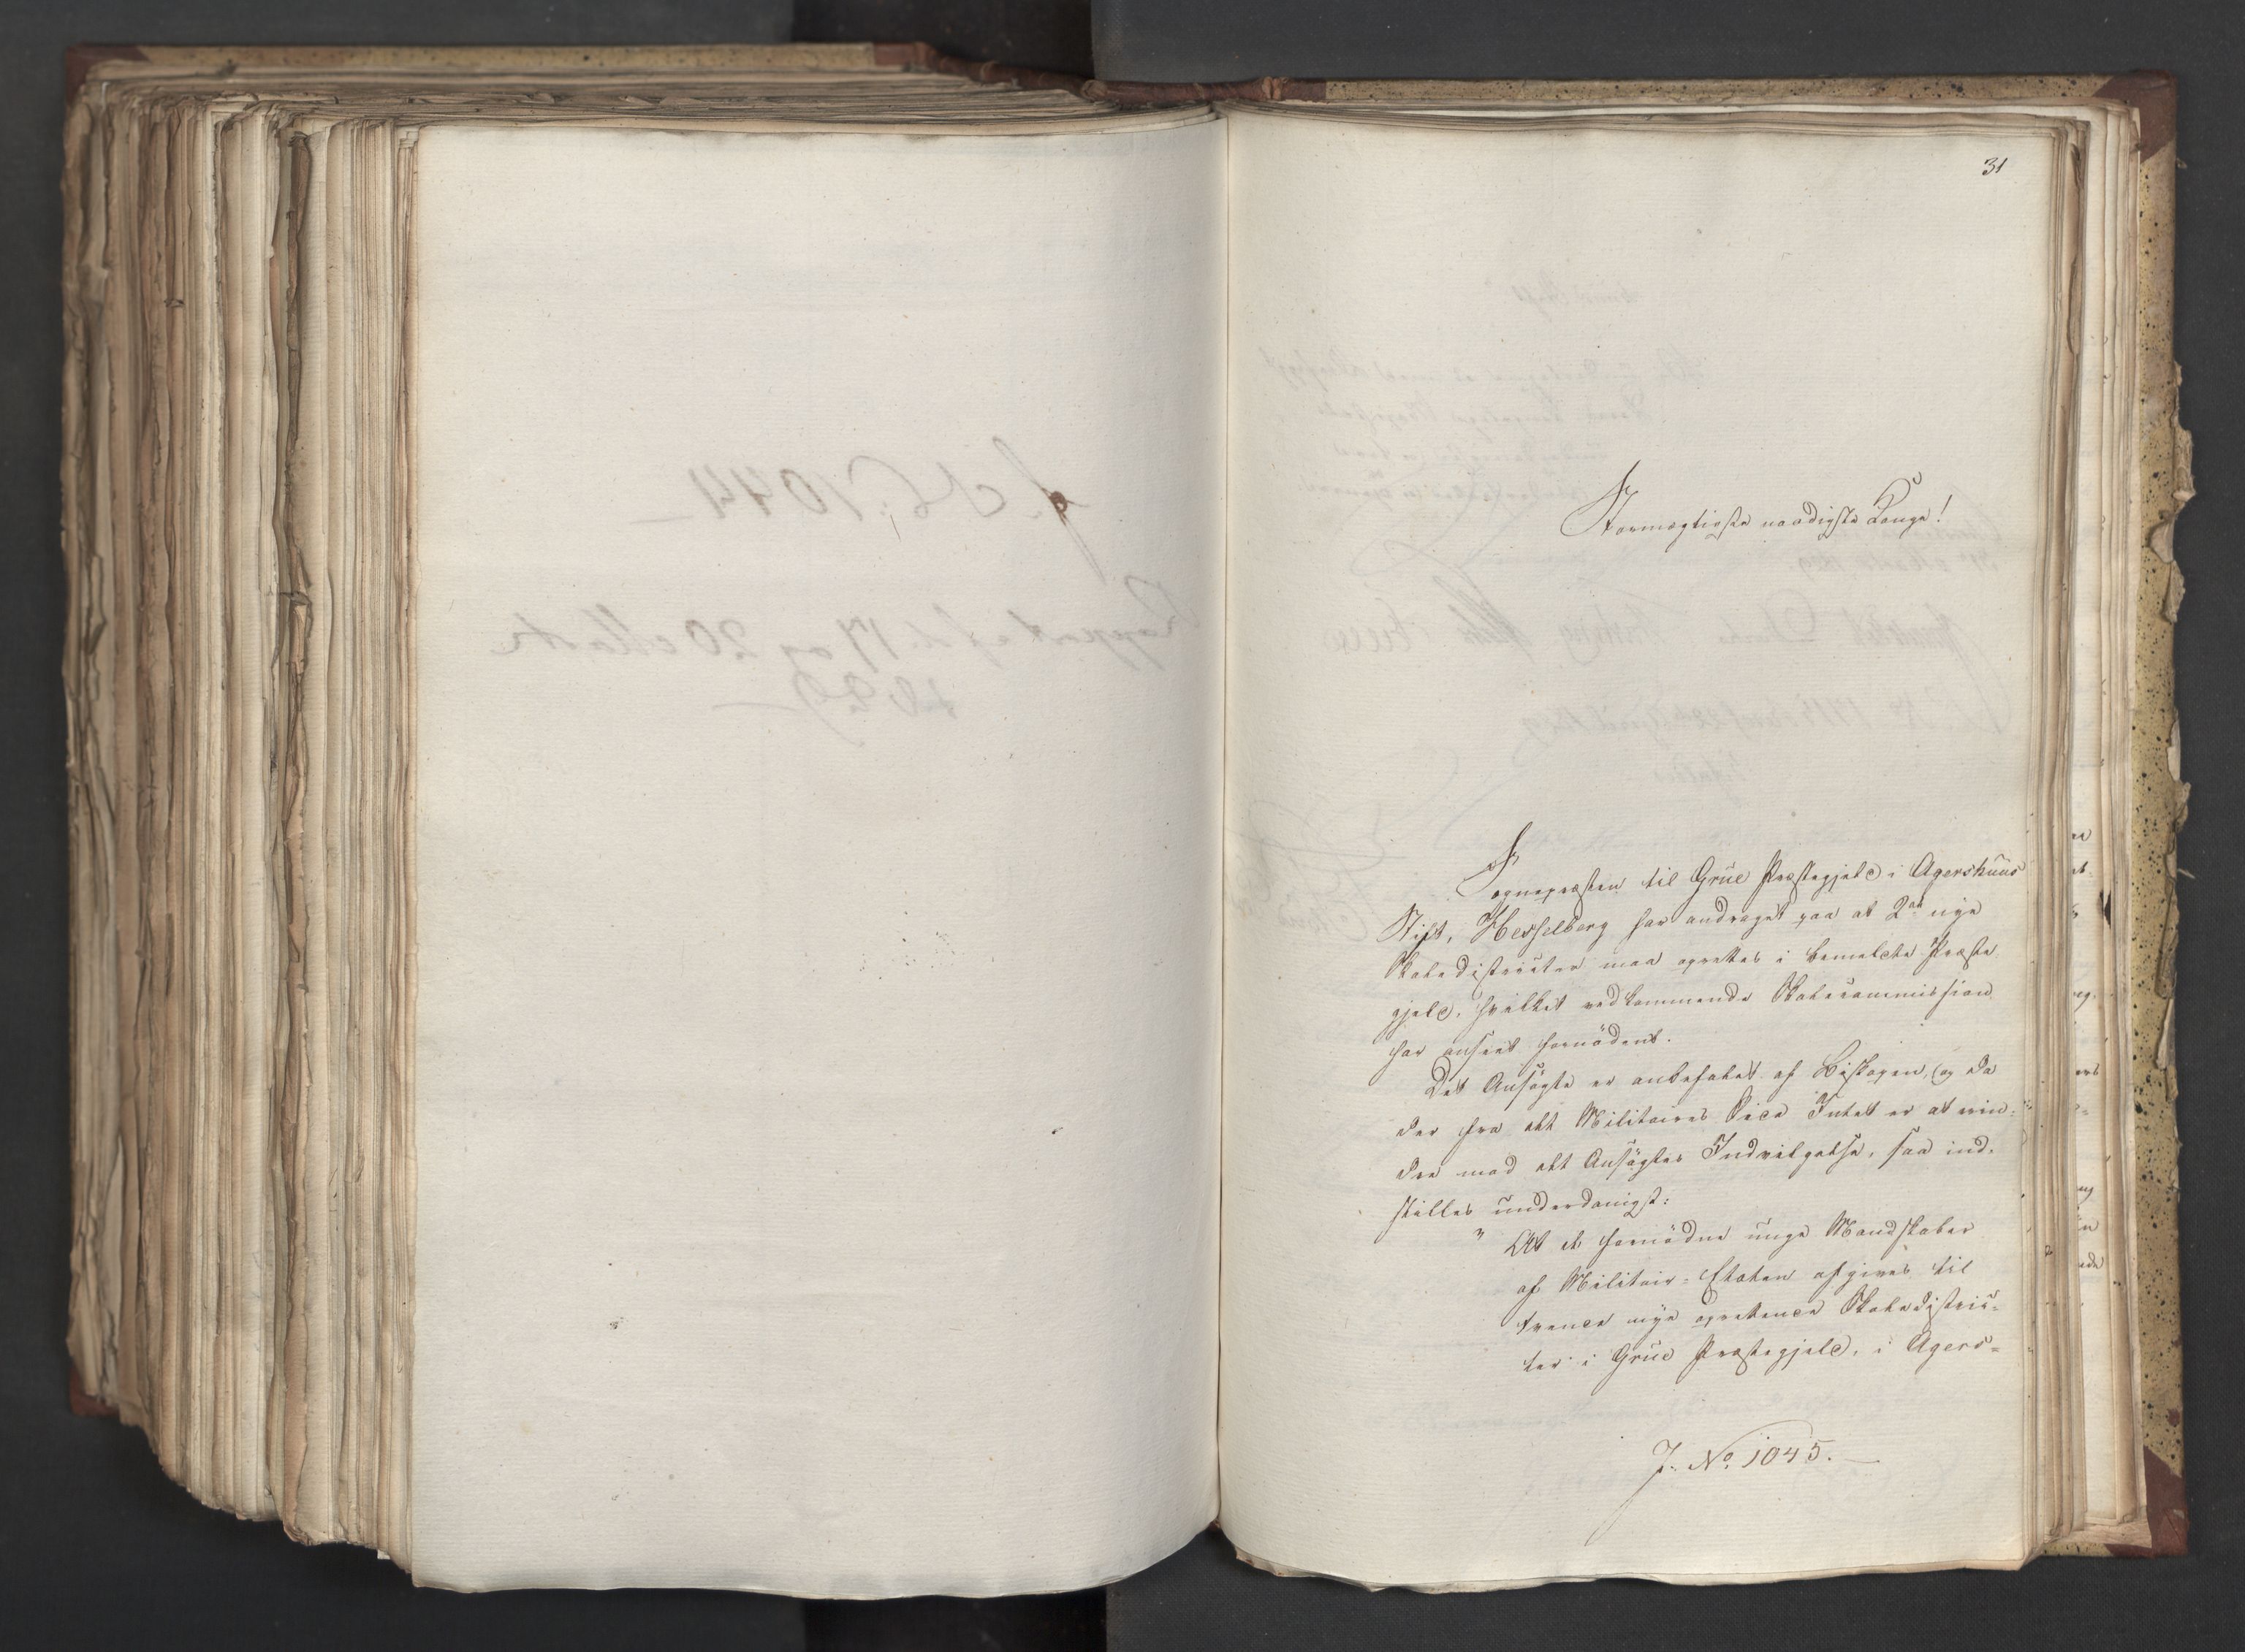 31
Stormægtigste naadigste Konge!
Sognepræsten til Grue Præstegjeld i Agershuus
Stift, Hesselberg har andraget paa at 2de nye
Skoledistricter maa oprettes i bemeldte Præste
gjeld, hvilket vedkommende Skolecommission
har anseet fornödent.
Det Ansögte er anbefalet af Biskopen, og da
der fra det Militaires Side Intet er at erin-
dre mod det Ansögtes Indvilgelse, saa ind-
stilles underdanigst:
" At de fornödne unge Mandskaber
af Militair-Etaten afgives til
tvende nye oprettende Skoledistric-
ter i Grue Præstegjeld, i Agers-
J. No. 1045.